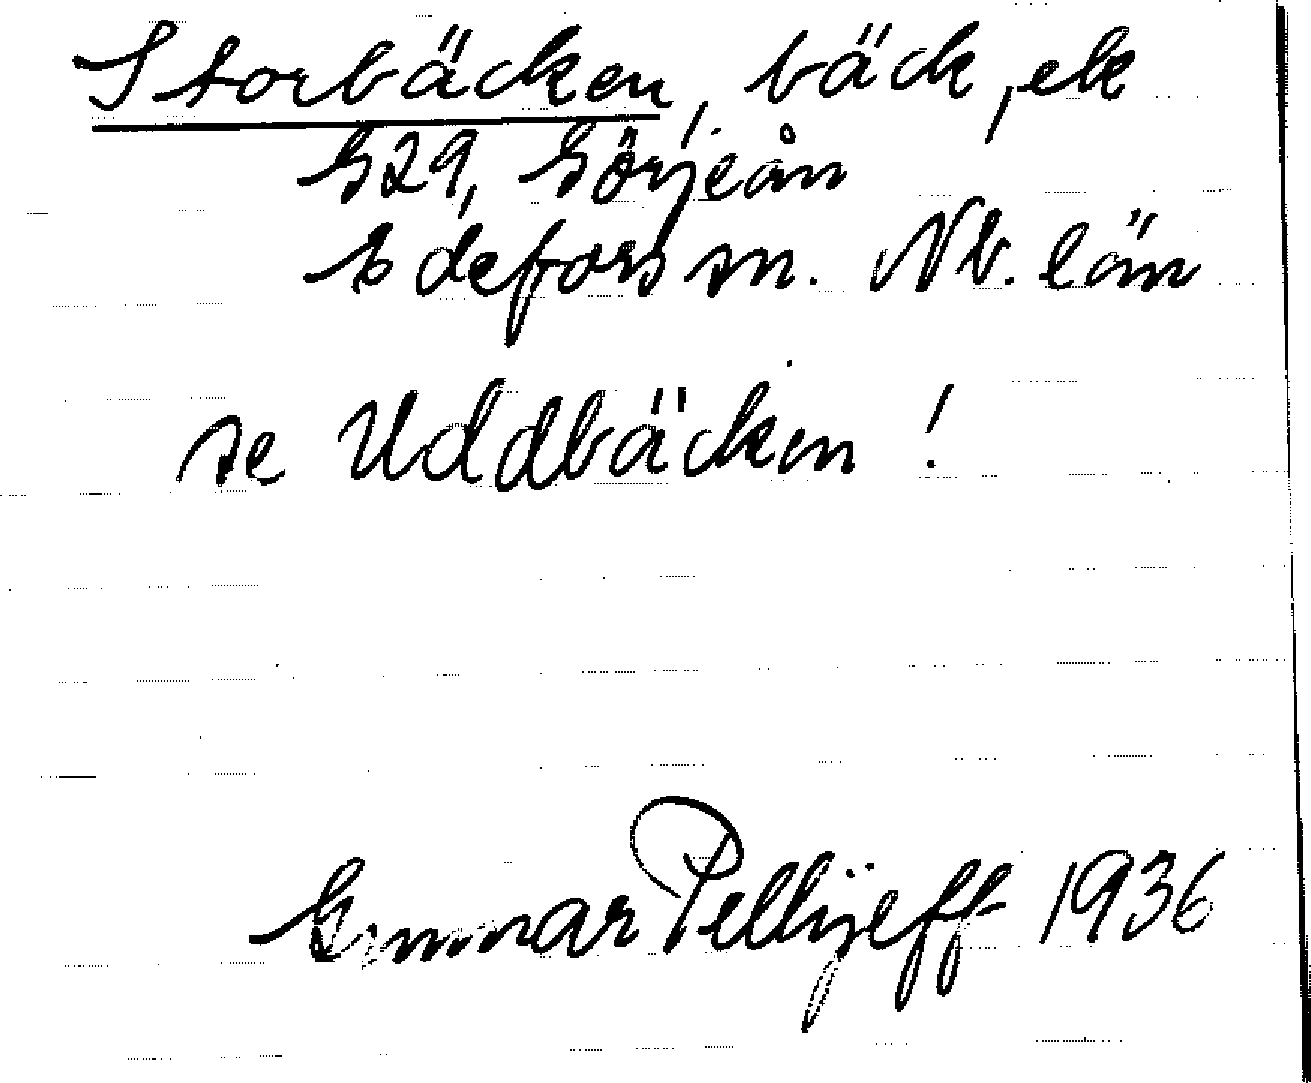 Storbäcken, bäck, ek
G29, Görjeån
Edefors sn. Nb. län
se Uddbäcken!
Gunnar Pellijeff 1936